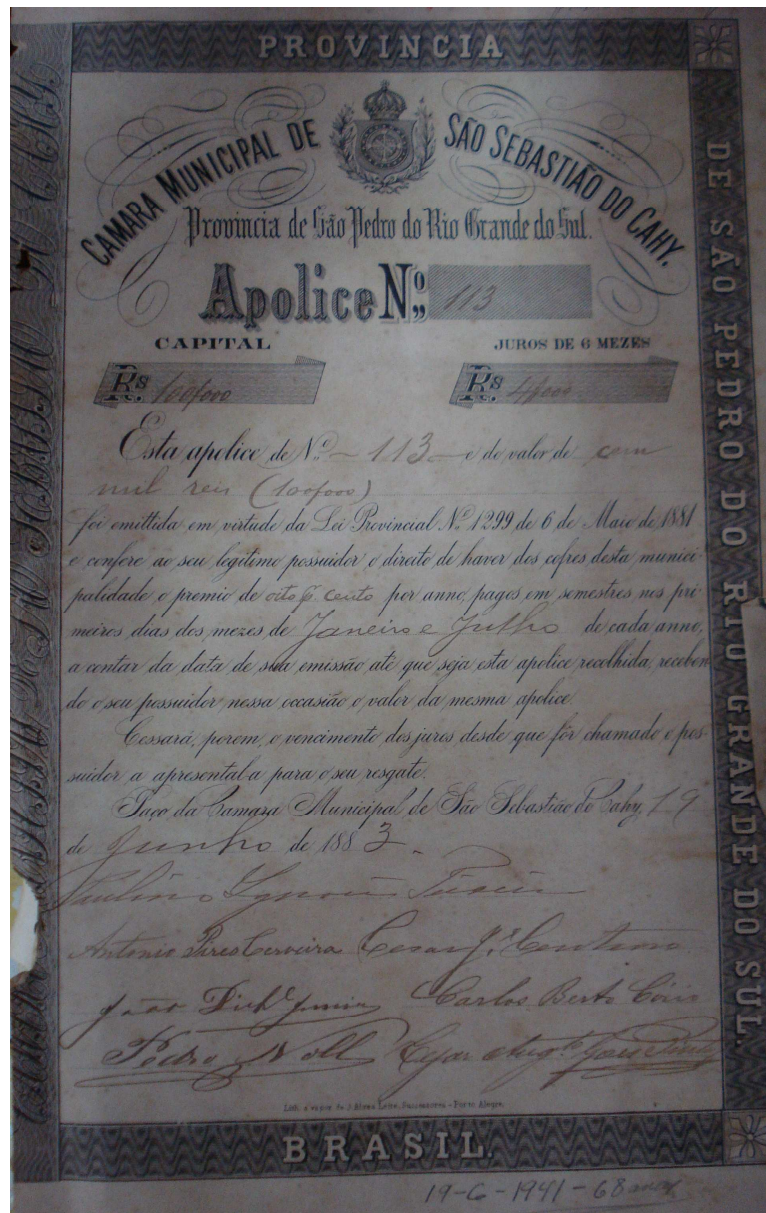 PROVINCIA
DE SÃO PEDRO DO RIO GRANDE DO SUL.
CAMARA MUNICIPAL DE SÃO SEBASTIÃO DO CAHY.
Provincia de São Pedro do Rio Grande do Sul.
Apolice Nº 113
CAPITAL JUROS DE 6 MEZES
Rs 100$000 Rs 4$000
Esta apolice de Nº - 113 - e do valor de cem
mil reis (100$000)
foi emittida em virtude da Lei Provincial Nº 1299 de 6 de Maio de 1881
e confere ao seu legitimo possuidor o direito de haver dos cofres desta munici-
palidade o premio de oito % cento por anno, pagos em semestres nos pri-
meiros dias dos mezes de Janeiro e Julho de cada anno,
a contar da data de sua emissão até que seja esta apolice recolhida, receben-
do o seu possuidor nessa occasião o valor da mesma apolice.
Cessará, porem, o vencimento dos juros desde que fôr chamado o pos-
suidor a apresental-a para o seu resgate.
Paço da Camara Municipal de São Sebastião do Cahy, 19
de Junho de 1883.
Paulino Ignacio
Antonio Pires Cerveira Cezar
João Carlos Berto
Pedro Noll
Lith. a vapor de J. Alves Leite, Successores - Porto Alegre.
BRASIL.
19-6-1941-68 anos